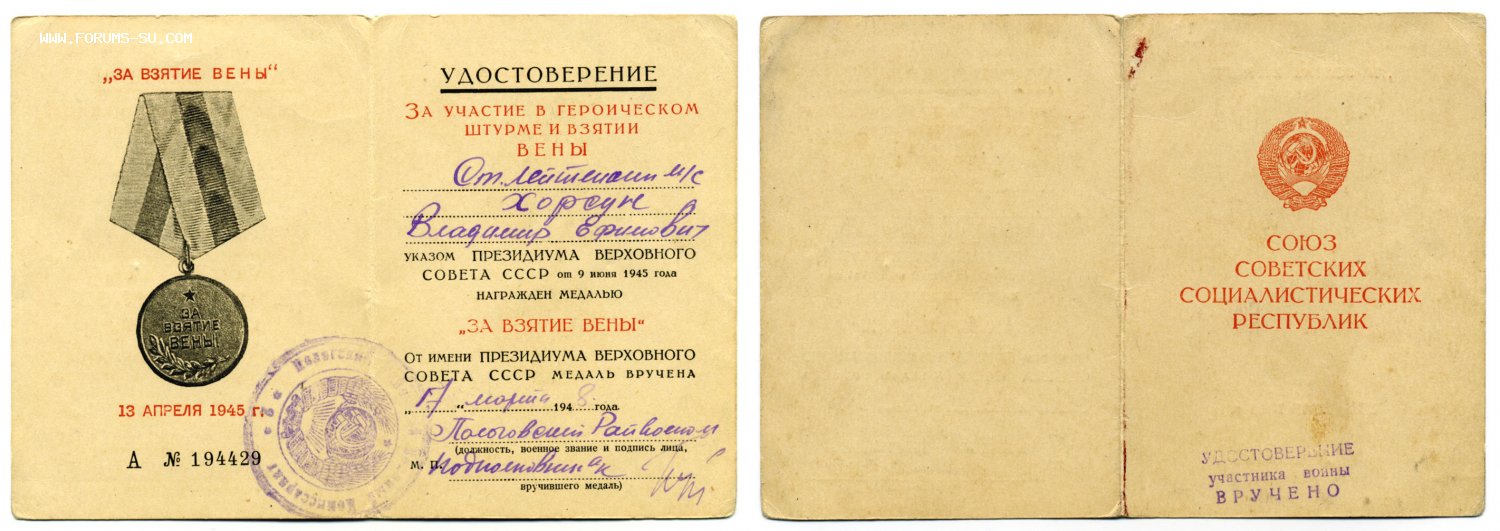 WWW.FORUMS-SU.COM
„ЗА ВЗЯТИЕ ВЕНЫ“
ЗА
ВЗЯТИЕ
ВЕНЫ
13 АПРЕЛЯ 1945 г.
А № 194429
УДОСТОВЕРЕНИЕ
ЗА УЧАСТИЕ В ГЕРОИЧЕСКОМ
ШТУРМЕ И ВЗЯТИИ
ВЕНЫ
Ст. лейтенант м/с
Хорсун
Владимир Ефимович
УКАЗОМ ПРЕЗИДИУМА ВЕРХОВНОГО
СОВЕТА СССР от 9 июня 1945 года
НАГРАЖДЕН МЕДАЛЬЮ
„ЗА ВЗЯТИЕ ВЕНЫ“
ОТ ИМЕНИ ПРЕЗИДИУМА ВЕРХОВНОГО
СОВЕТА СССР МЕДАЛЬ ВРУЧЕНА
„17“ марта 1948 года
Пологовский Райвоенком
(должность, военное звание и подпись лица,
М. П. Подполковник
вручившего медаль)
СОЮЗ
СОВЕТСКИХ
СОЦИАЛИСТИЧЕСКИХ
РЕСПУБЛИК
УДОСТОВЕРЕНИЕ
участника войны
ВРУЧЕНО